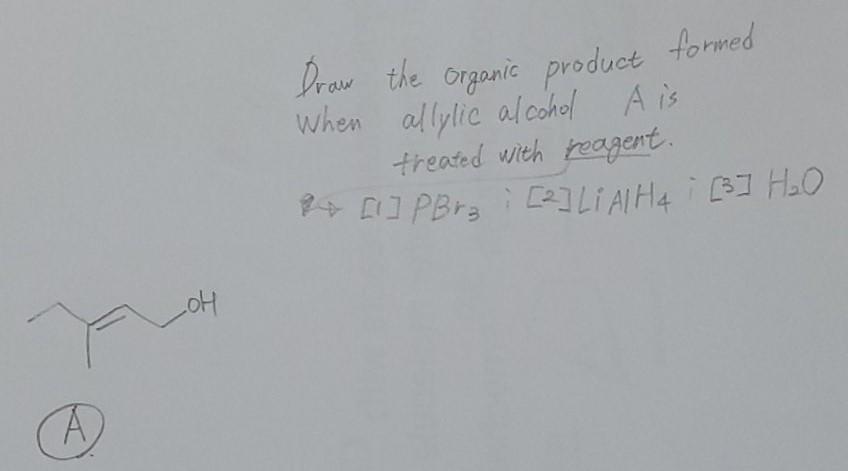 Draw the organic product formed
When allylic alcohol A is
treated with reagent.
[1] PBr₃ ; [2] LiAlH₄ ; [3] H₂O
OH
A